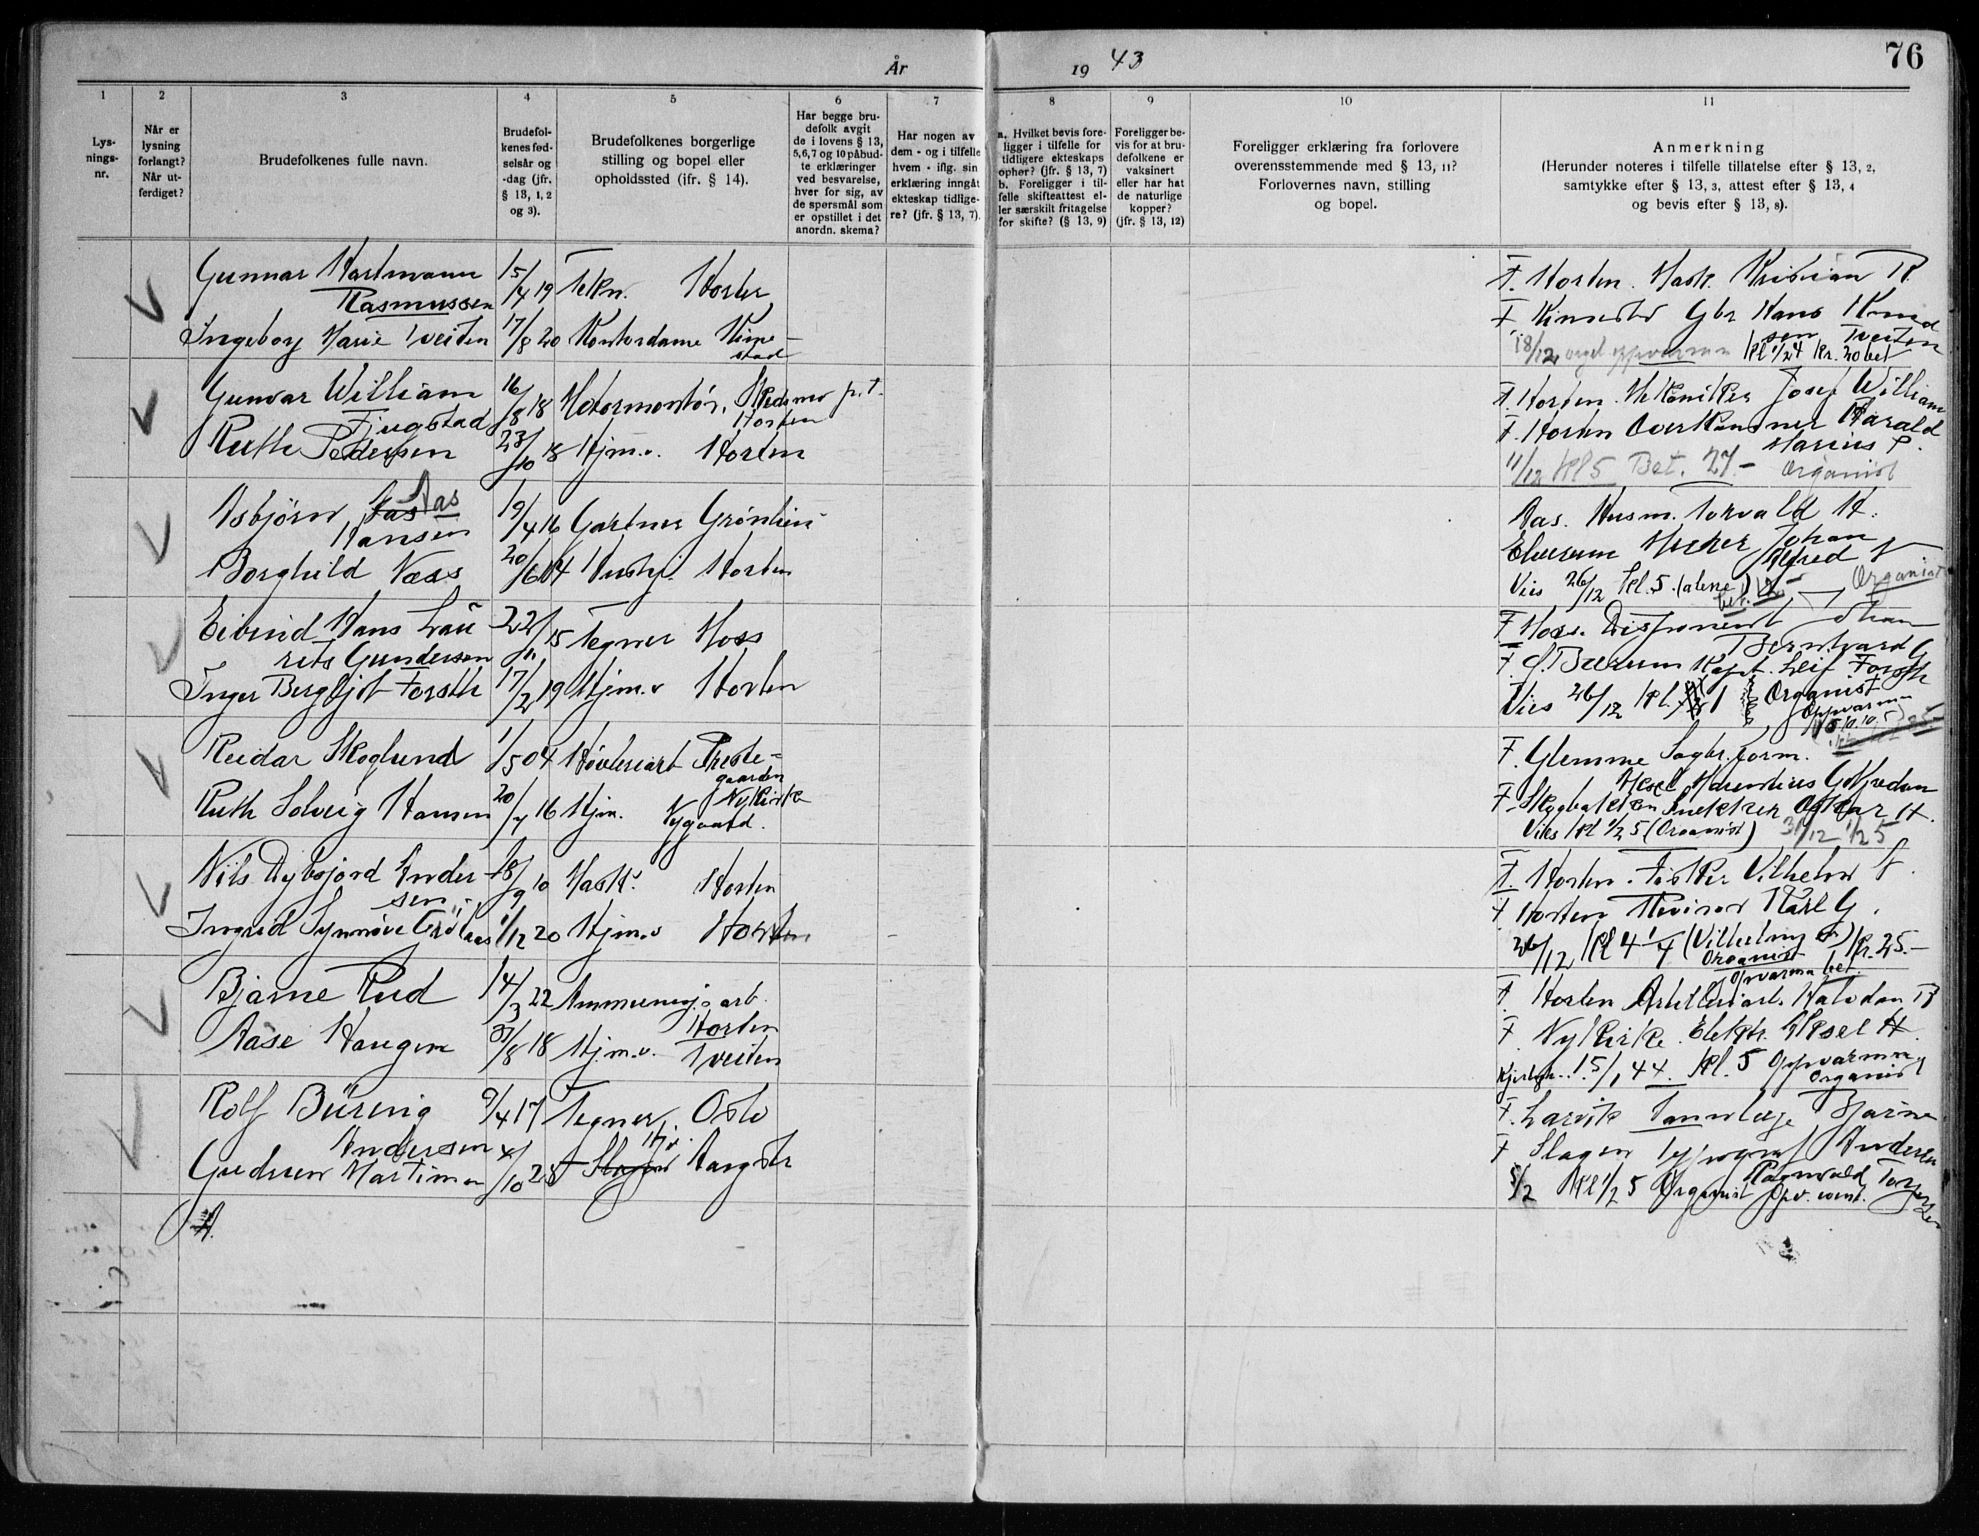 År 1943
76
1 2 3 4 5 6 7 8 9 10 11
Lys-
nings-
nr.
Når er
lysning
forlangt?
Når ut-
ferdiget?
Brudefolkenes fulle navn.
Brudefol-
kenes fød-
selsår og
-dag (jfr.
§ 13, 1, 2
og 3).
Brudefolkenes borgerlige
stilling og bopel eller
opholdssted (ifr. § 14).
Har begge bru-
defolk avgit
de i lovens § 13,
5,6,7 og 10 påbud-
te erklæringer
ved besvarelse,
hver for sig, av
de spørsmål som
er opstillet i det
anordn. skema?
Har nogen av
dem - og i tilfelle
hvem - iflg. sin
erklæring inngåt
ekteskap tidlige-
re? (jfr. § 13, 7).
a. Hvilket bevis fore-
ligger i tilfelle for
tidligere ekteskaps
ophør? (jfr. § 13, 7)
b. Foreligger i til-
felle skifteattest el-
ler særskilt fritagelse
for skifte? (§ 13, 9)
Foreligger be-
vis for at bru-
defolkene er
vaksinert
eller har hat
de naturlige
kopper?
(jfr. § 13, 12)
Foreligger erklæring fra forlovere
overensstemmende med § 13, 11?
Forlovernes navn, stilling
og bopel.
Anmerkning
(Herunder noteres i tilfelle tillatelse efter § 13, 2,
samtykke efter § 13, 3, attest efter § 13, 4
og bevis efter § 13, 8).
Gunnar Hartmann
Rasmussen
15/4 19 Tekn. Horten
F. Horten. Mask. Kristian R
Ingeborg Marie Tveiten
17/8 20 Kontordame Kime-
stad
F Kimestad Gbr Hans Knud
sen Tveiten
18/12 kl 1/2 4 kr. 20 bet
Gunvar William
Fjugstad
16/8 18 Motormontør, Skedsmo p.t.
Horten
F. Horten. Mekaniker Josef William
Ruth Pedersen
23/10 18 Hjm.v. Horten
F. Horten Overkanoner Harald
Marius P.
11/12 kl 5 Bet. 27.- Organist
Asbjørn Aas
Hansen
19/4 16 Gartner Grønlien
Aas. Husm. Torvald H.
Borghild Næss
20/6 04 Hushj. Horten
Elverum Murer Johan
Alfred N
Vies 26/12 kl. 5. (alene) Organist
Eivind Hans Lau
rits Gundersen
22/11 15 Tegner Moss
F Moss. Disponent Johan
Bernhard G
Inger Bergljot Forsth
17/2 19 Hjm.v Horten
F. S. Bærum Kapt. Leif Forsth
Vies 26/12 kl. 1 Organist
Oppvarm
Reidar Skoglund
1/5 04 Høvleriarb Preste-
gaarden
Nykirke
F. Glemme Sagbr. form.
Ruth Solveig Hansen
20/7 16 Hjm. Nygaard.
F. Skogbakken Snekker Oskar H.
Vies kl 1/2 5 (Organist) 31/12 1/2 5
Nils Dybsjord Ander-
sen
18/9 10 Mask. Horten
F. Horten. Fisker Vilhelm A.
Ingrid Synnøve Grølaas
1/12 20 Hjm.v Horten
F Horten Revisor Karl G.
26/12 kl 4 1/4 Kr. 25.-
Organist
Opvarm bet.
Bjarne Rud
14/3 22 Ammunisj. arb.
Horten
F. Horten Artilleriarb. Halvdan R
Aase Haugen
31/8 18 Hjm.v. Tveiten
F. Nykirke. Elektr. Aksel H.
15/1 44. kl. 5 Oppvarming
Organist
Rolf Büring
Andersen
9/4 17 Tegner. Oslo
F. Larvik Tannlege Bjarne
Andersen
Gudrun Martinsen
4/10 28 Aasgstr
F Slagen Typograf
Ragnvald Torgersen
5/2 kl 1/2 5 Organist Opv.